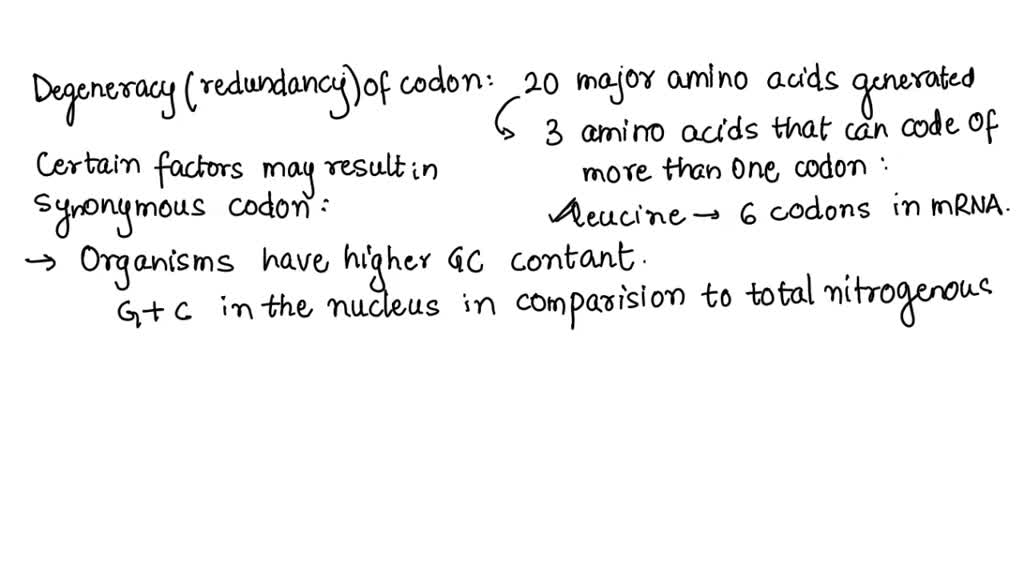 Degeneracy (redundancy) of codon: 20 major amino acids generated
3 amino acids that can code of
more than one codon:
leucine → 6 codons in mRNA.
Certain factors may result in
synonymous codon:
→ Organisms have higher GC contant.
G+C in the nucleus in comparision to total nitrogenous